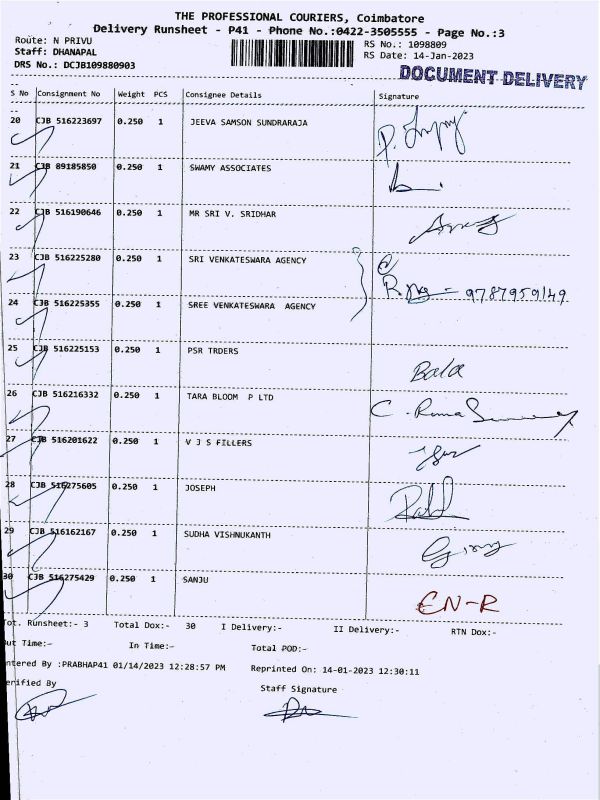 THE PROFESSIONAL COURIERS, Coimbatore
Delivery Runsheet - P41 - Phone No.:0422-3505555 - Page No.:3
Route: N PRIVU
RS No.: 1098809
Staff: DHANAPAL
RS Date: 14-Jan-2023
DRS No.: DCJB109880903
DOCUMENT DELIVERY
S No Consignment No Weight PCS Consignee Details Signature
20 CJB 516223697 0.250 1 JEEVA SAMSON SUNDRARAJA
21 CJB 89185850 0.250 1 SWAMY ASSOCIATES
22 CJB 516190646 0.250 1 MR SRI V. SRIDHAR
23 CJB 516225280 0.250 1 SRI VENKATESWARA AGENCY
9787959149
24 CJB 516225355 0.250 1 SREE VENKATESWARA AGENCY
25 CJB 516225153 0.250 1 PSR TRDERS Bala
26 CJB 516216332 0.250 1 TARA BLOOM P LTD
27 CJB 516201622 0.250 1 V J S FILLERS
28 CJB 516275605 0.250 1 JOSEPH
29 CJB 516162167 0.250 1 SUDHA VISHNUKANTH
30 CJB 516275429 0.250 1 SANJU EN-R
Tot. Runsheet:- 3 Total Dox:- 30 I Delivery:- II Delivery:- RTN Dox:-
Out Time:- In Time:- Total POD:-
ntered By :PRABHAP41 01/14/2023 12:28:57 PM Reprinted On: 14-01-2023 12:30:11
erified By Staff Signature